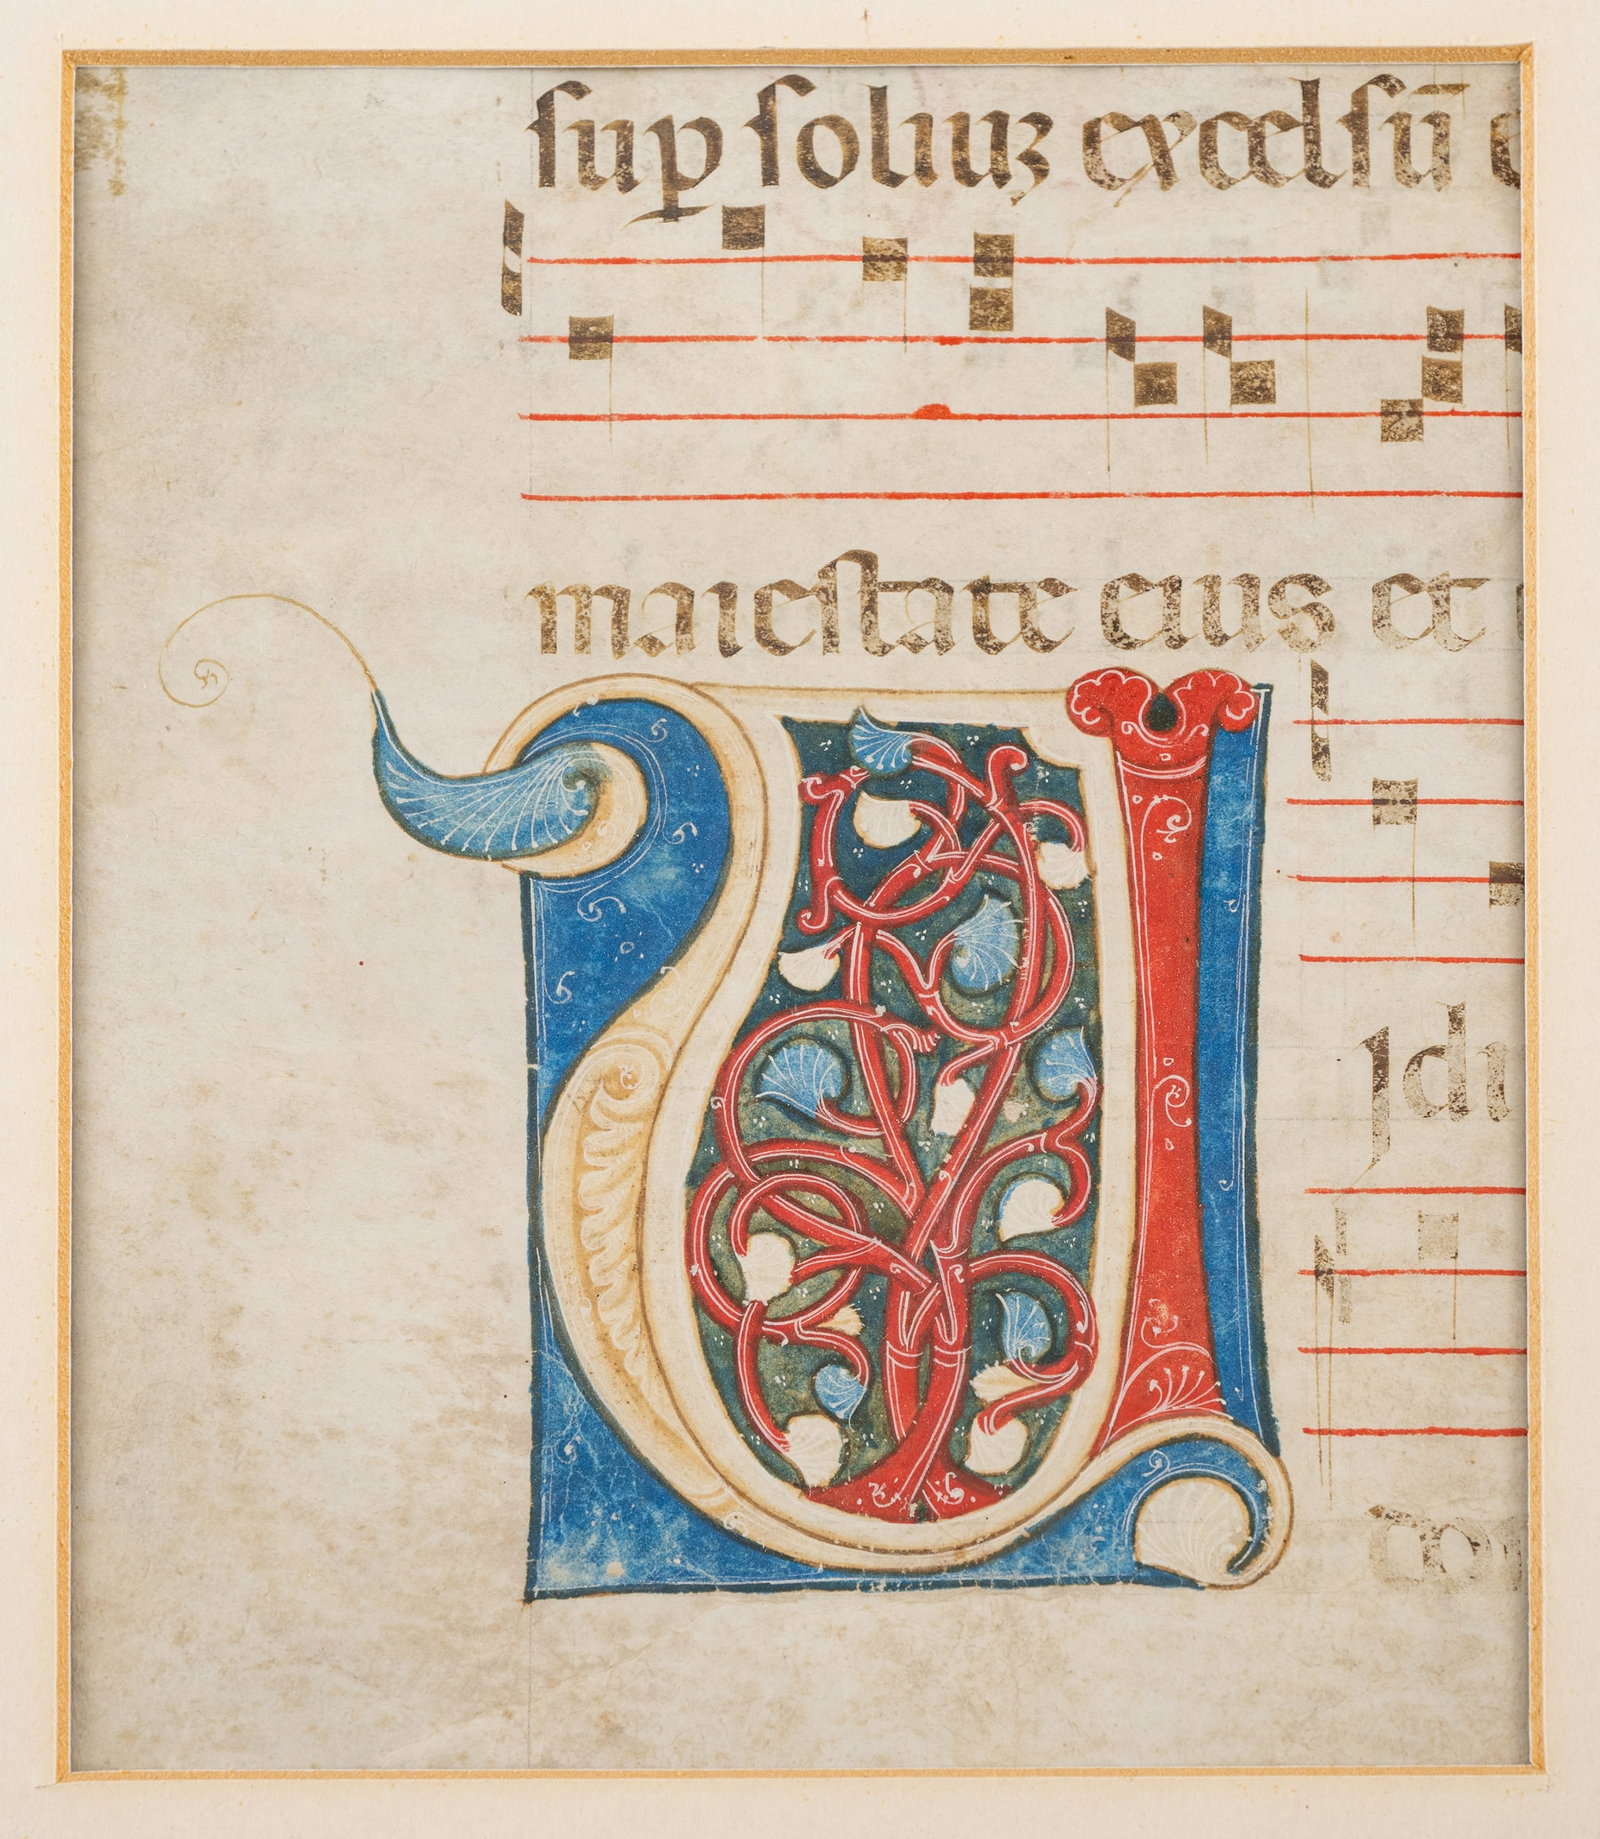 sup soliuʒ excelsū
maiestate eius et
V
Jdi